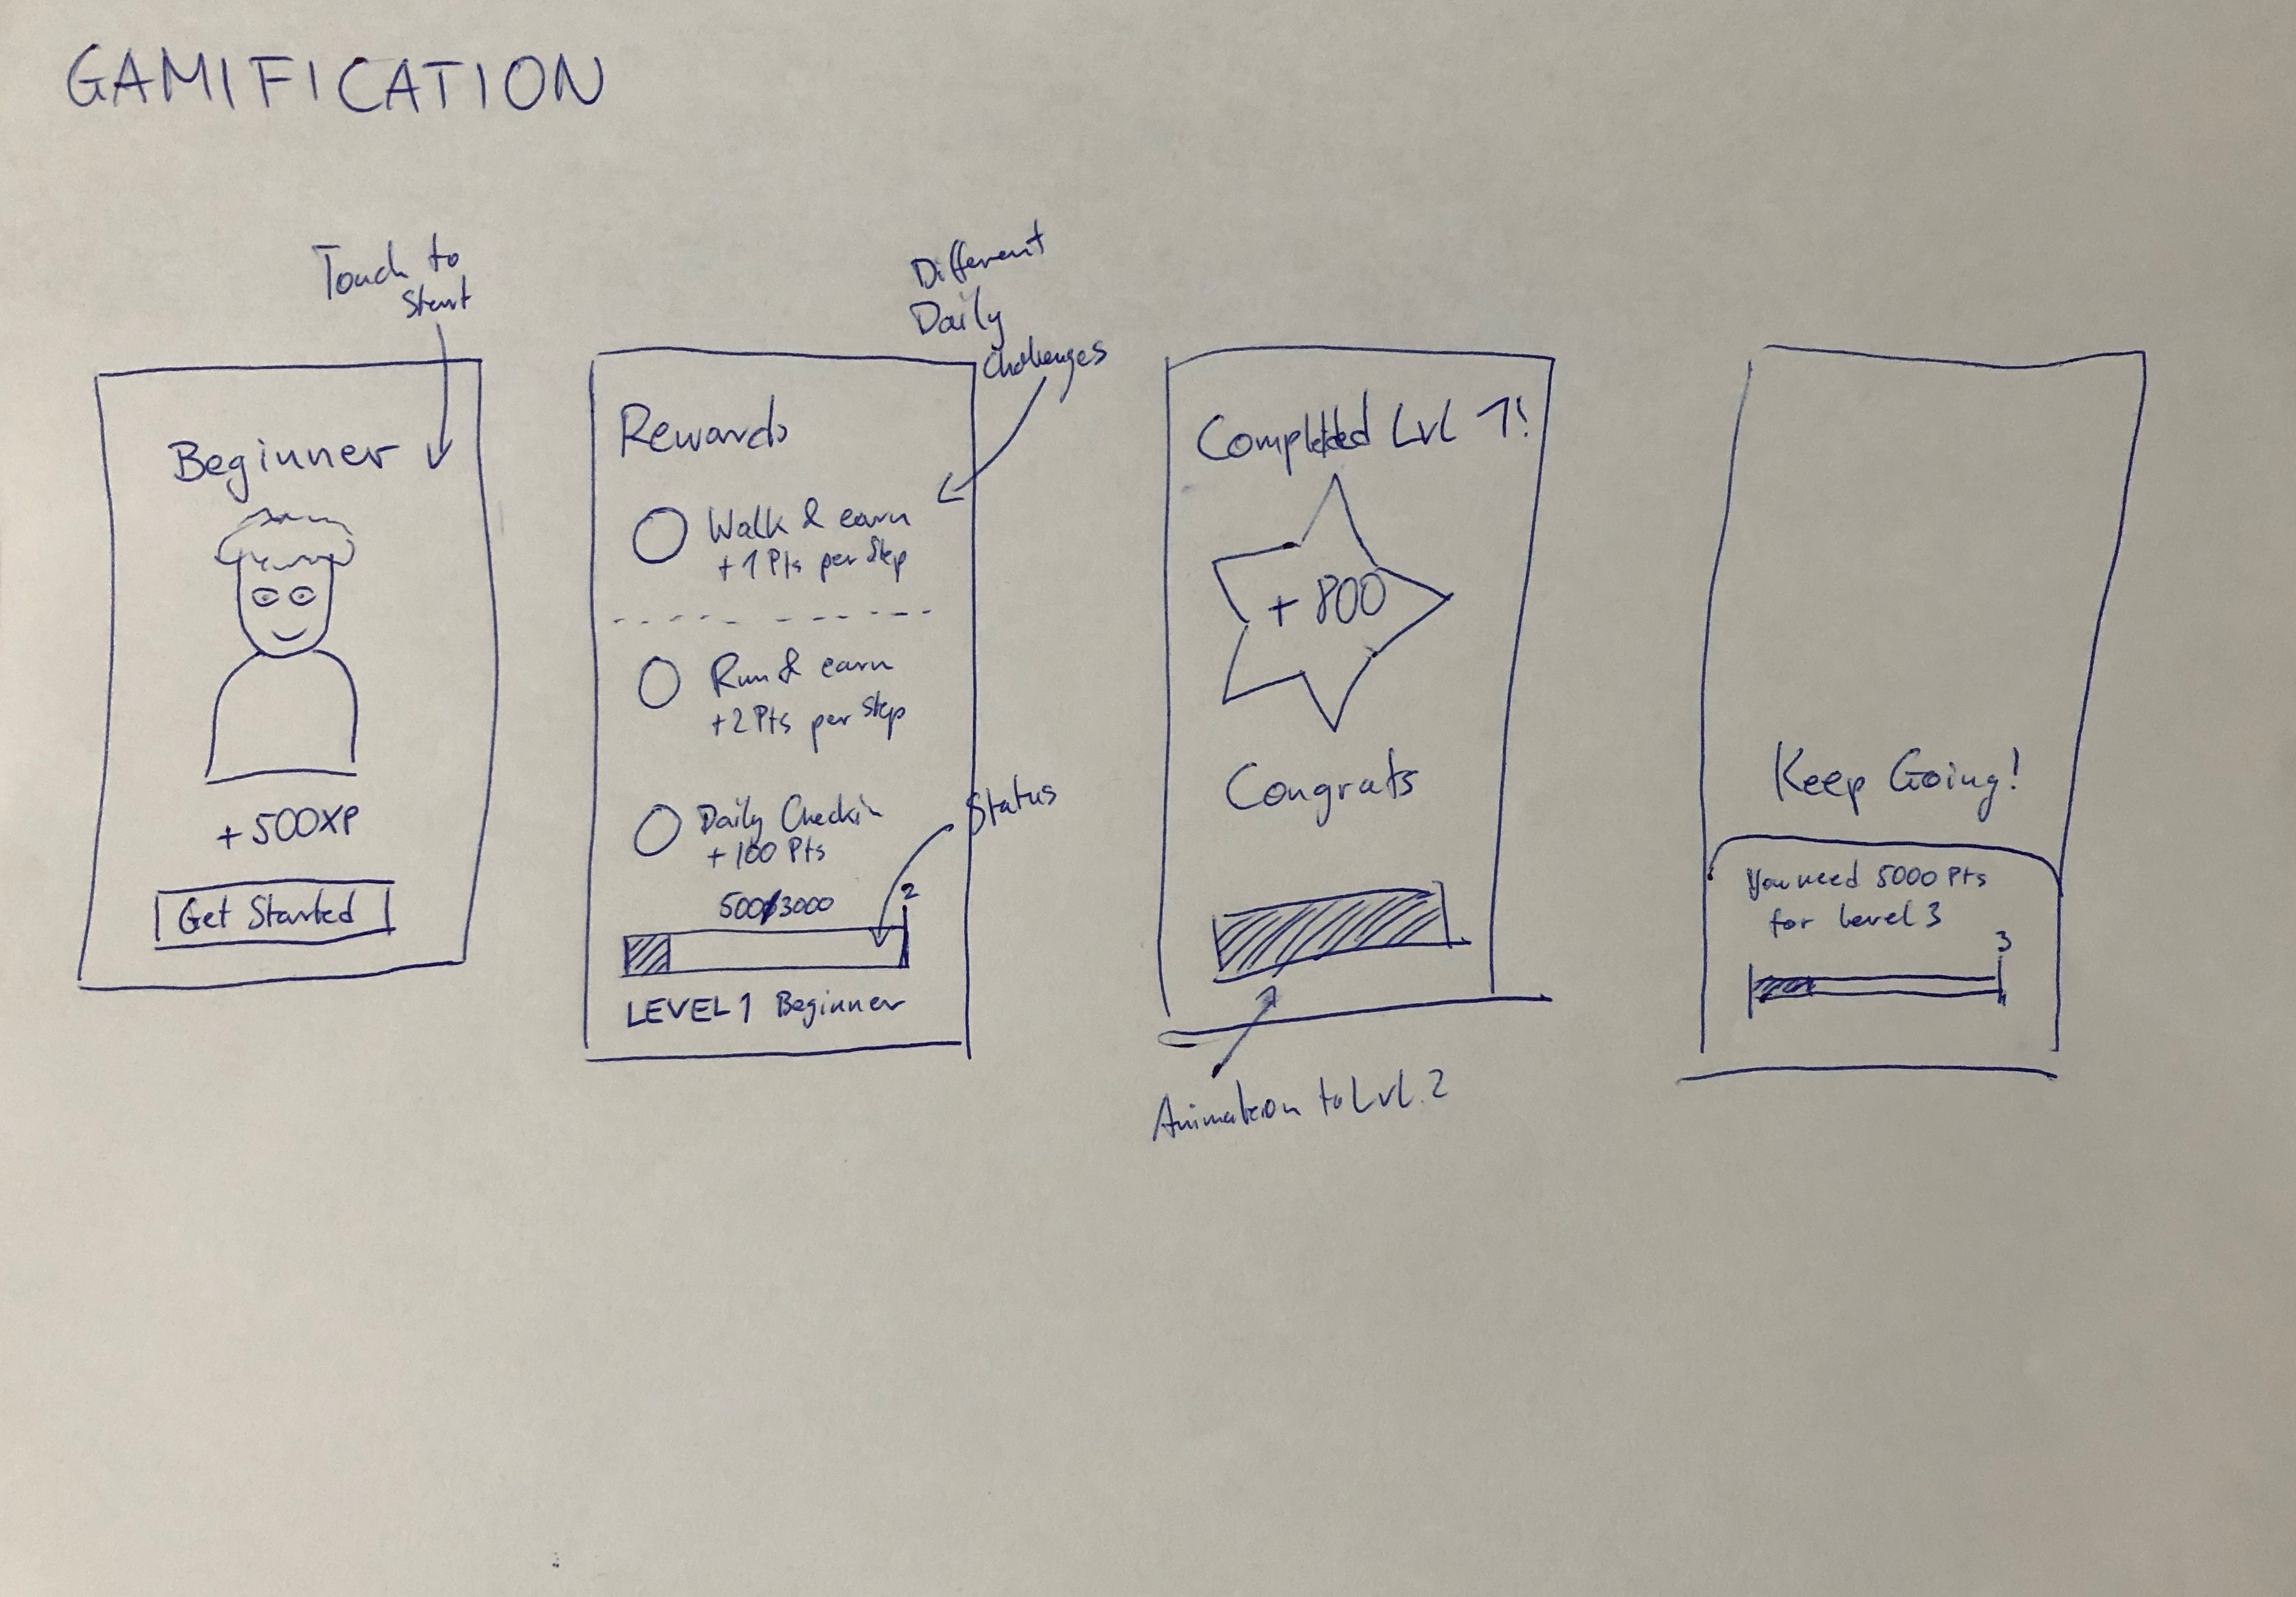 GAMIFICATION
Touch to
start
Beginner
+ 500XP
Get Started
Different
Daily
Challenges
Rewards
Walk & earn
+ 1 Pts per step
Run & earn
+ 2 Pts per step
Daily Checkin
+ 100 Pts
Status
500/3000
2
LEVEL 1 Beginner
Completed Lvl 1!
+ 800
Congrats
Animation to Lvl. 2
Keep Going!
You need 5000 Pts
for Level 3
3